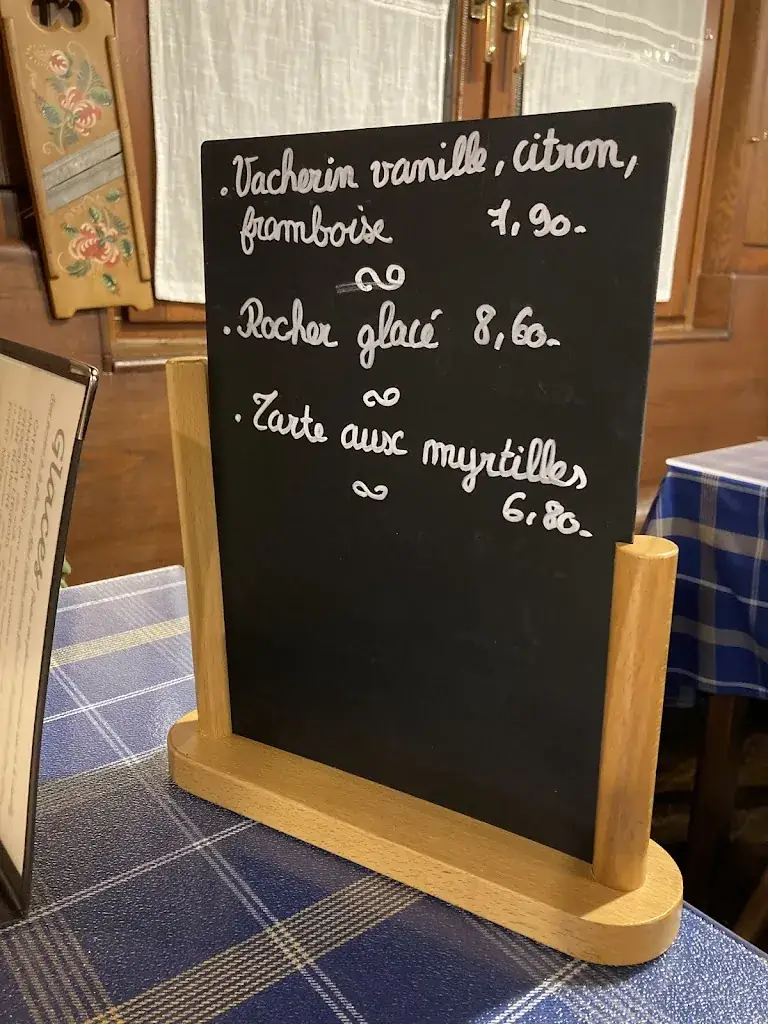 . Vacherin vanille, citron,
framboise 7,90.-
. Rocher glacé 8,60.-
. Tarte aux myrtilles
6,80.-
Glaces